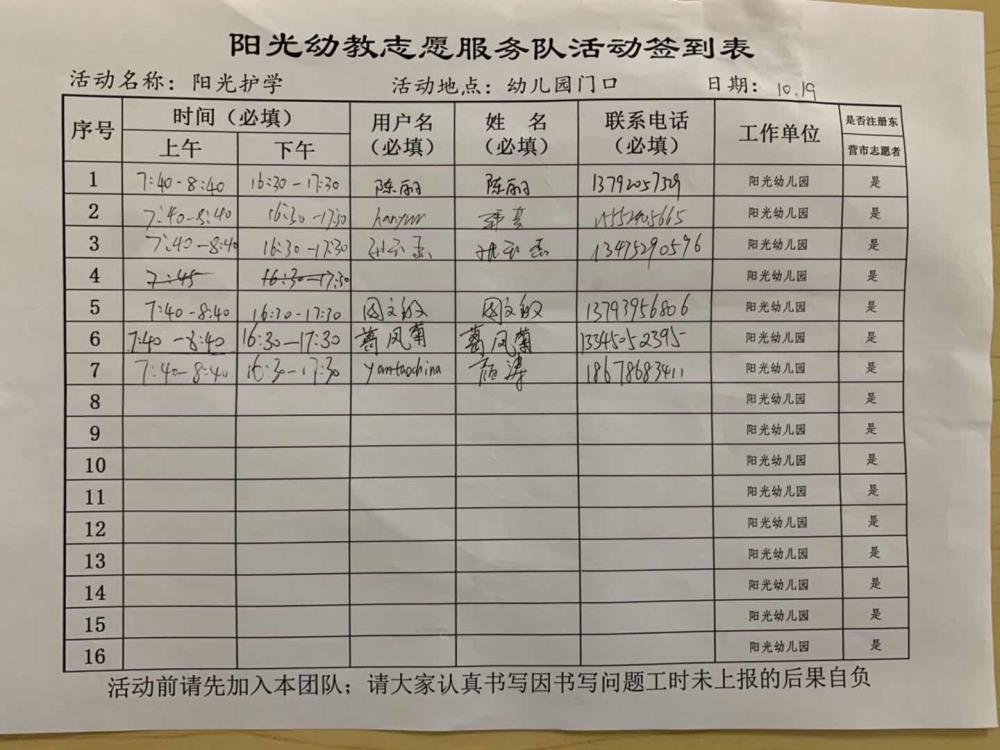 阳光幼教志愿服务队活动签到表
活动名称：阳光护学 活动地点：幼儿园门口 日期：10.19
序号 时间（必填） 用户名（必填） 姓 名（必填） 联系电话（必填） 工作单位 是否注册东营市志愿者
上午 下午
1 7:40-8:40 16:30-17:30 陈丽 陈丽 13792057529 阳光幼儿园 是
2 7:40-8:40 16:30-17:30 阳光幼儿园 是
3 7:40-8:40 16:30-17:30 13475290596 阳光幼儿园 是
4 7:45 16:30-17:30 阳光幼儿园 是
5 7:40-8:40 16:30-17:30 13793956806 阳光幼儿园 是
6 7:40-8:40 16:30-17:30 葛凤菊 葛凤菊 13345052395 阳光幼儿园 是
7 7:40-8:40 16:30-17:30 yantaochina 颜涛 18678683411 阳光幼儿园 是
8 阳光幼儿园 是
9 阳光幼儿园 是
10 阳光幼儿园 是
11 阳光幼儿园 是
12 阳光幼儿园 是
13 阳光幼儿园 是
14 阳光幼儿园 是
15 阳光幼儿园 是
16 阳光幼儿园 是
活动前请先加入本团队；请大家认真书写因书写问题工时未上报的后果自负